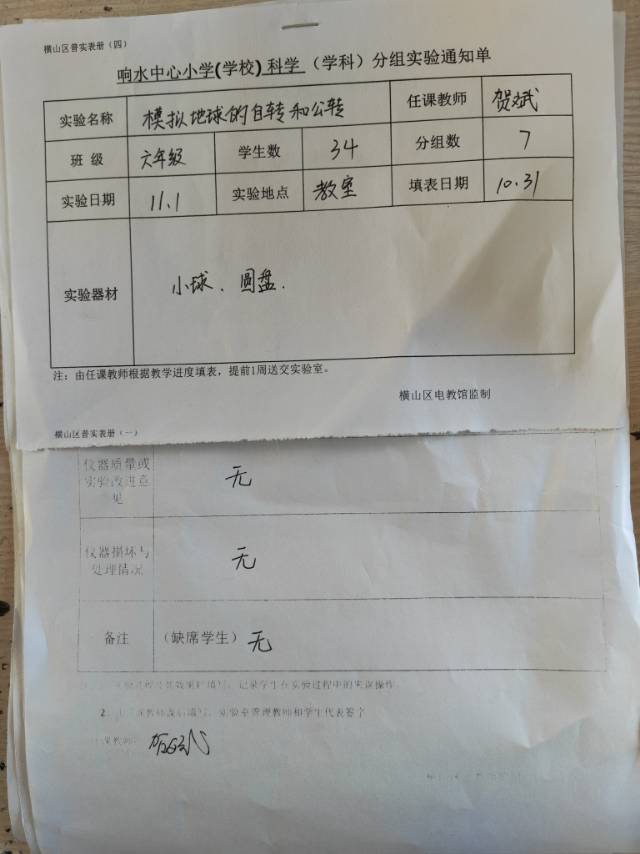 横山区普实表册（四）
响水中心小学(学校)科学（学科）分组实验通知单
实验名称 模拟地球的自转和公转 任课教师 贺斌
班 级 六年级 学生数 34 分组数 7
实验日期 11.1 实验地点 教室 填表日期 10.31
实验器材 小球、圆盘.
注：由任课教师根据教学进度填表，提前1周送交实验室。
横山区电教馆监制
横山区普实表册（一）
仪器质量或
实验改进意
见
无
仪器损坏与
处理情况
无
备注 （缺席学生）无
填写，记录学生在实验过程中的失误操作
2 教师课后填写，实验室管理教师和学生代表签字